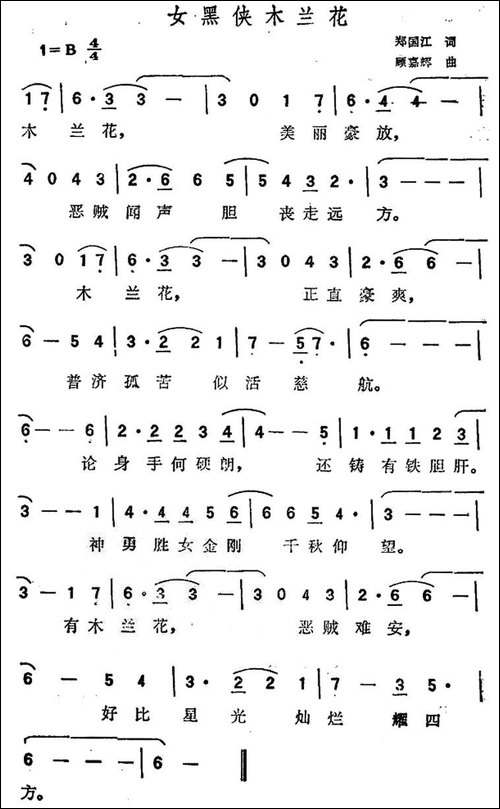 女黑侠木兰花
1=B 4/4
郑国江 词
顾嘉辉 曲
1 7 | 6 · 3 3 — | 3 0 1 7 | 6 · 4 4 — |
木兰花， 美丽豪放，
4 0 4 3 | 2 · 6 6 5 | 5 4 3 2 · | 3 — — — |
恶贼闻声 胆 丧走远 方。
3 0 1 7 | 6 · 3 3 — | 3 0 4 3 | 2 · 6 6 — |
木 兰花， 正直豪爽，
6 — 5 4 | 3 · 2 2 1 | 7 — 5 7 · | 6 — — — |
普济孤苦 似活 慈 航。
6 — — 6 | 2 · 2 2 3 4 | 4 — — 5 | 1 · 1 1 2 3 |
论身手何硬朗， 还铸有铁胆肝。
3 — — 1 | 4 · 4 4 5 6 | 6 6 5 4 · | 3 — — — |
神勇胜女金刚 千秋仰 望。
3 — 1 7 | 6 · 3 3 — | 3 0 4 3 | 2 · 6 6 — |
有木兰花， 恶贼难安，
6 — 5 4 | 3 · 2 2 1 | 7 — 3 5 ·
好比 星 光 灿烂 耀四
6 — — — | 6 —
方。